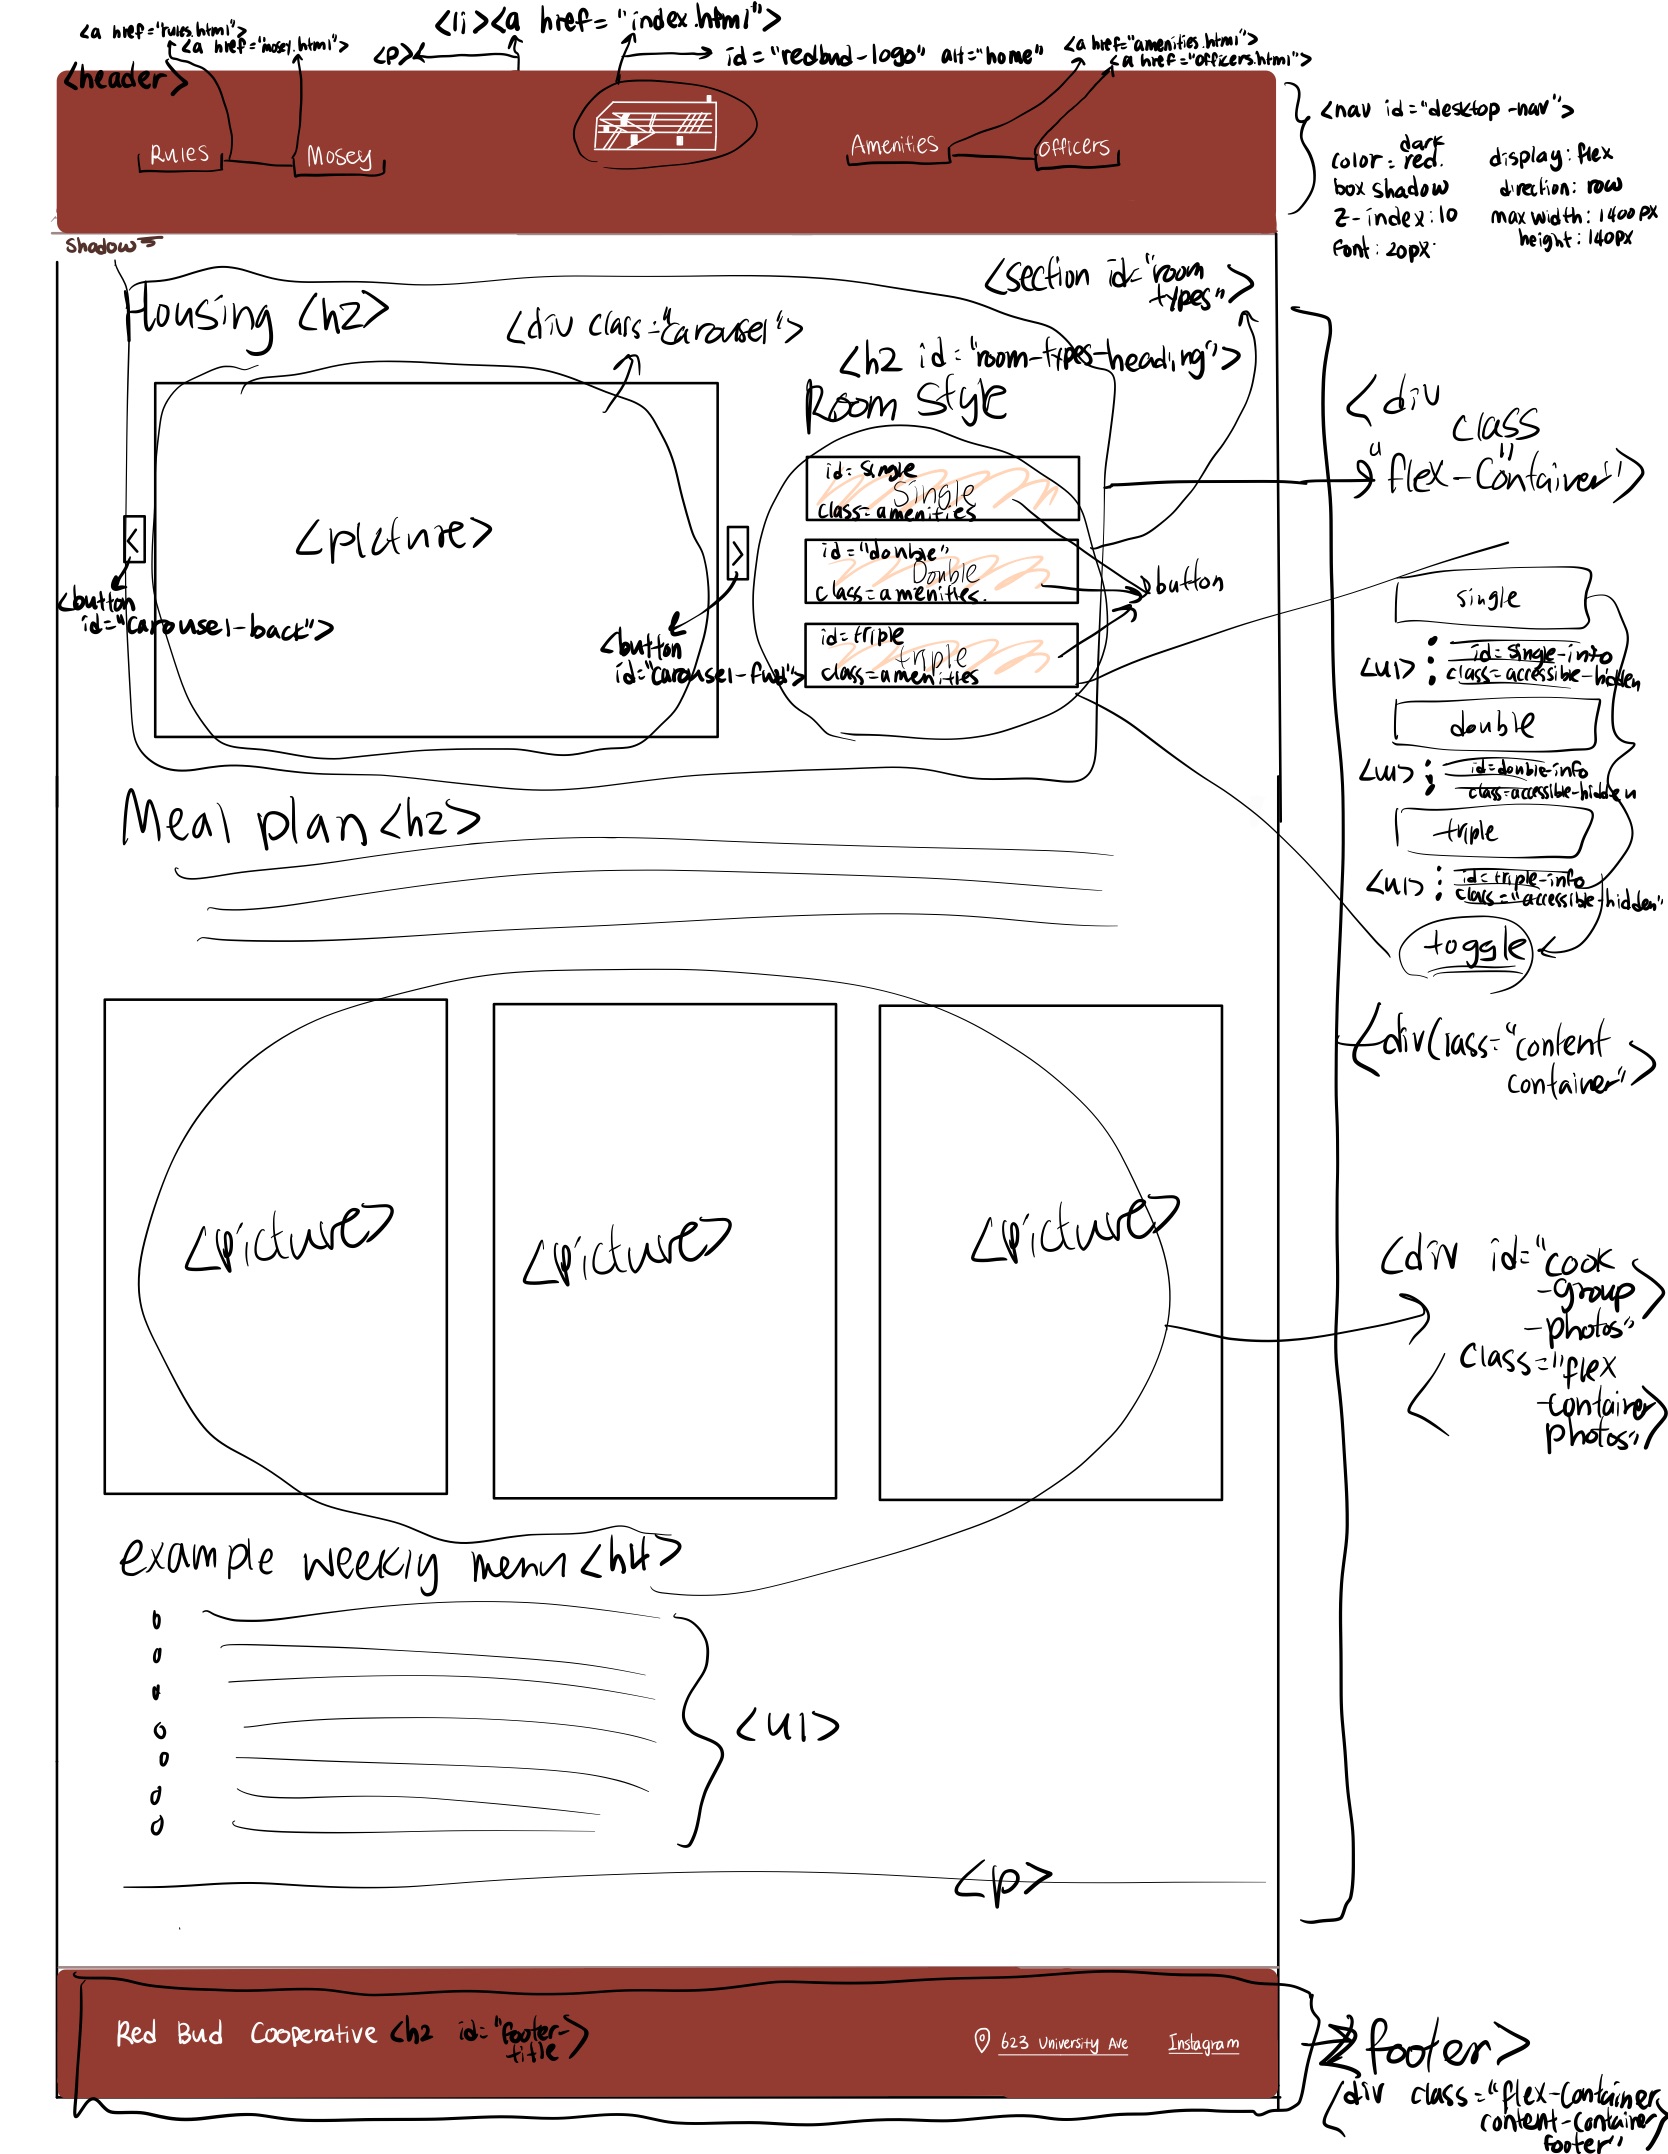 <a href="rules.html">
<a href="mosey.html">
<li><a href="index.html">
<p>
id="redbud-logo" alt="home"
<a href="amenities.html">
<a href="officers.html">
<header>
Rules
Mosey
Amenities
Officers
<nav id="desktop-nav">
color: dark red.
box shadow
z-index:10
font: 20px.
display: flex
direction: row
max width: 1400px
height: 140px
Shadow
Housing <h2>
<div class="carousel">
<section id="room
types">
<h2 id="room-types-heading">
Room Style
<picture>
<
>
<button
id="carousel-back">
<button
id="carousel-fwd">
id=single
Single
class=amenities
id="double"
Double
class=amenities.
id=triple
triple
class=amenities
button
<div
class
"flex-container">
single
<ul>
id=single-info
class=accessible-hidden
double
<ul>
id=double-info
class=accessible-hidden
triple
<ul>
id=triple-info
class="accessible-hidden"
toggle
<div class="content
container">
Meal plan <h2>
<picture>
<picture>
<picture>
<div id="cook
-group
-photos">
class="flex
-container
photos">
example weekly menu <h4>
<ul>
<p>
Red Bud Cooperative <h2 id="footer-
title>
623 University Ave
Instagram
<footer>
<div class="flex-container
content-container
footer">